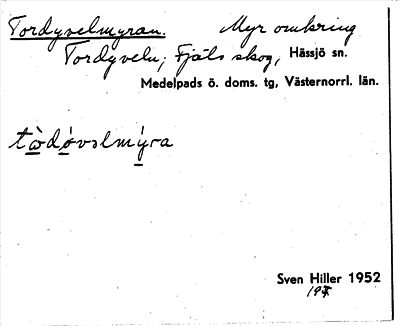 Tordyvelmyran. Myr omkring
Tordyveln, Fjäls skog, Hässjö sn.
Medelpads ö. doms. tg, Västernorrl. län.
tὼdǿvəlmýra
Sven Hiller 1952